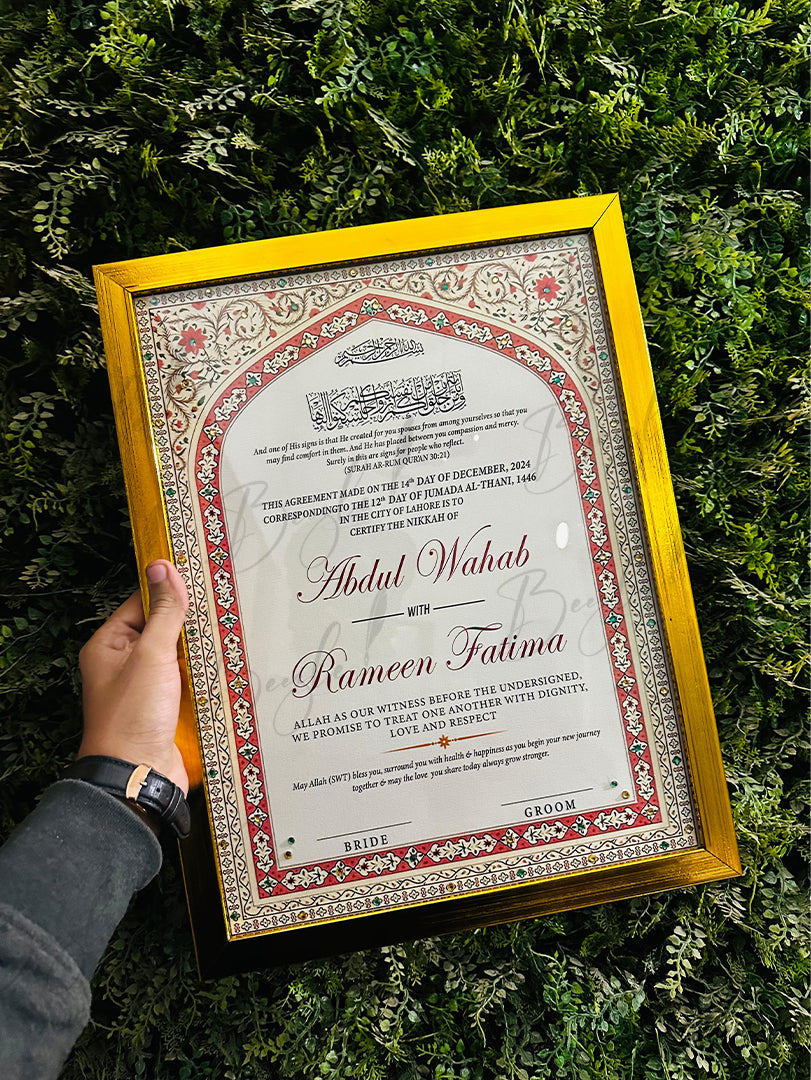 بسم الله الرحمن الرحيم
And one of His signs is that He created for you spouses from among yourselves so that you
may find comfort in them. And He has placed between you compassion and mercy.
Surely in this are signs for people who reflect.
(SURAH AR-RUM QUR'AN 30:21)
THIS AGREEMENT MADE ON THE 14th DAY OF DECEMBER, 2024
CORRESPONDINGTO THE 12th DAY OF JUMADA AL-THANI, 1446
IN THE CITY OF LAHORE IS TO
CERTIFY THE NIKKAH OF
Abdul Wahab
WITH
Rameen Fatima
ALLAH AS OUR WITNESS BEFORE THE UNDERSIGNED,
WE PROMISE TO TREAT ONE ANOTHER WITH DIGNITY,
LOVE AND RESPECT
May Allah (SWT) bless you, surround you with health & happiness as you begin your new journey
together & may the love you share today always grow stronger.
BRIDE
GROOM